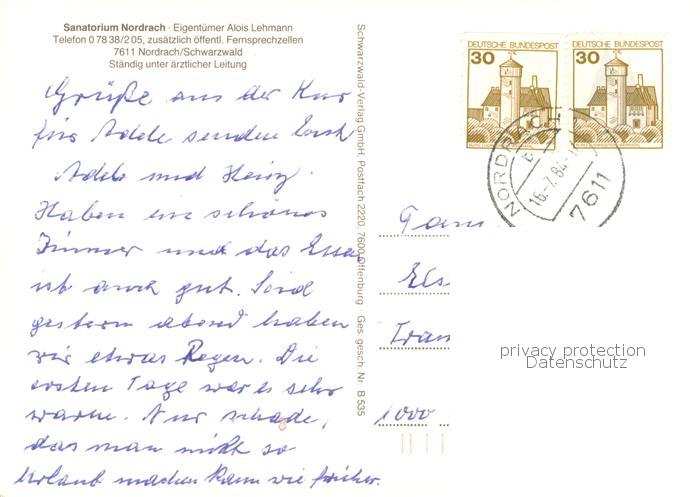 Sanatorium Nordrach · Eigentümer Alois Lehmann
Telefon 0 78 38/2 05, zusätzlich öffentl. Fernsprechzellen
7611 Nordrach/Schwarzwald
Ständig unter ärztlicher Leitung
Grüße aus der Kur
für Adele senden Euch
Adele und Heinz.
Haben ein schönes
Zimmer und das Essen
ist auch gut. Seid
gestern abend haben
wir etwas Regen. Die
ersten Tage war es sehr
warm. Nur schade,
das man nicht so
Urlaub machen kann wie früher.
Schwarzwald-Verlag GmbH, Postfach 2220, 7600 Offenburg Ges. gesch. Nr. B 535
DEUTSCHE BUNDESPOST
30
DEUTSCHE BUNDESPOST
30
NORDRACH
16.-7.84
7611
Fam
Els
Iran
1000
privacy protection
Datenschutz